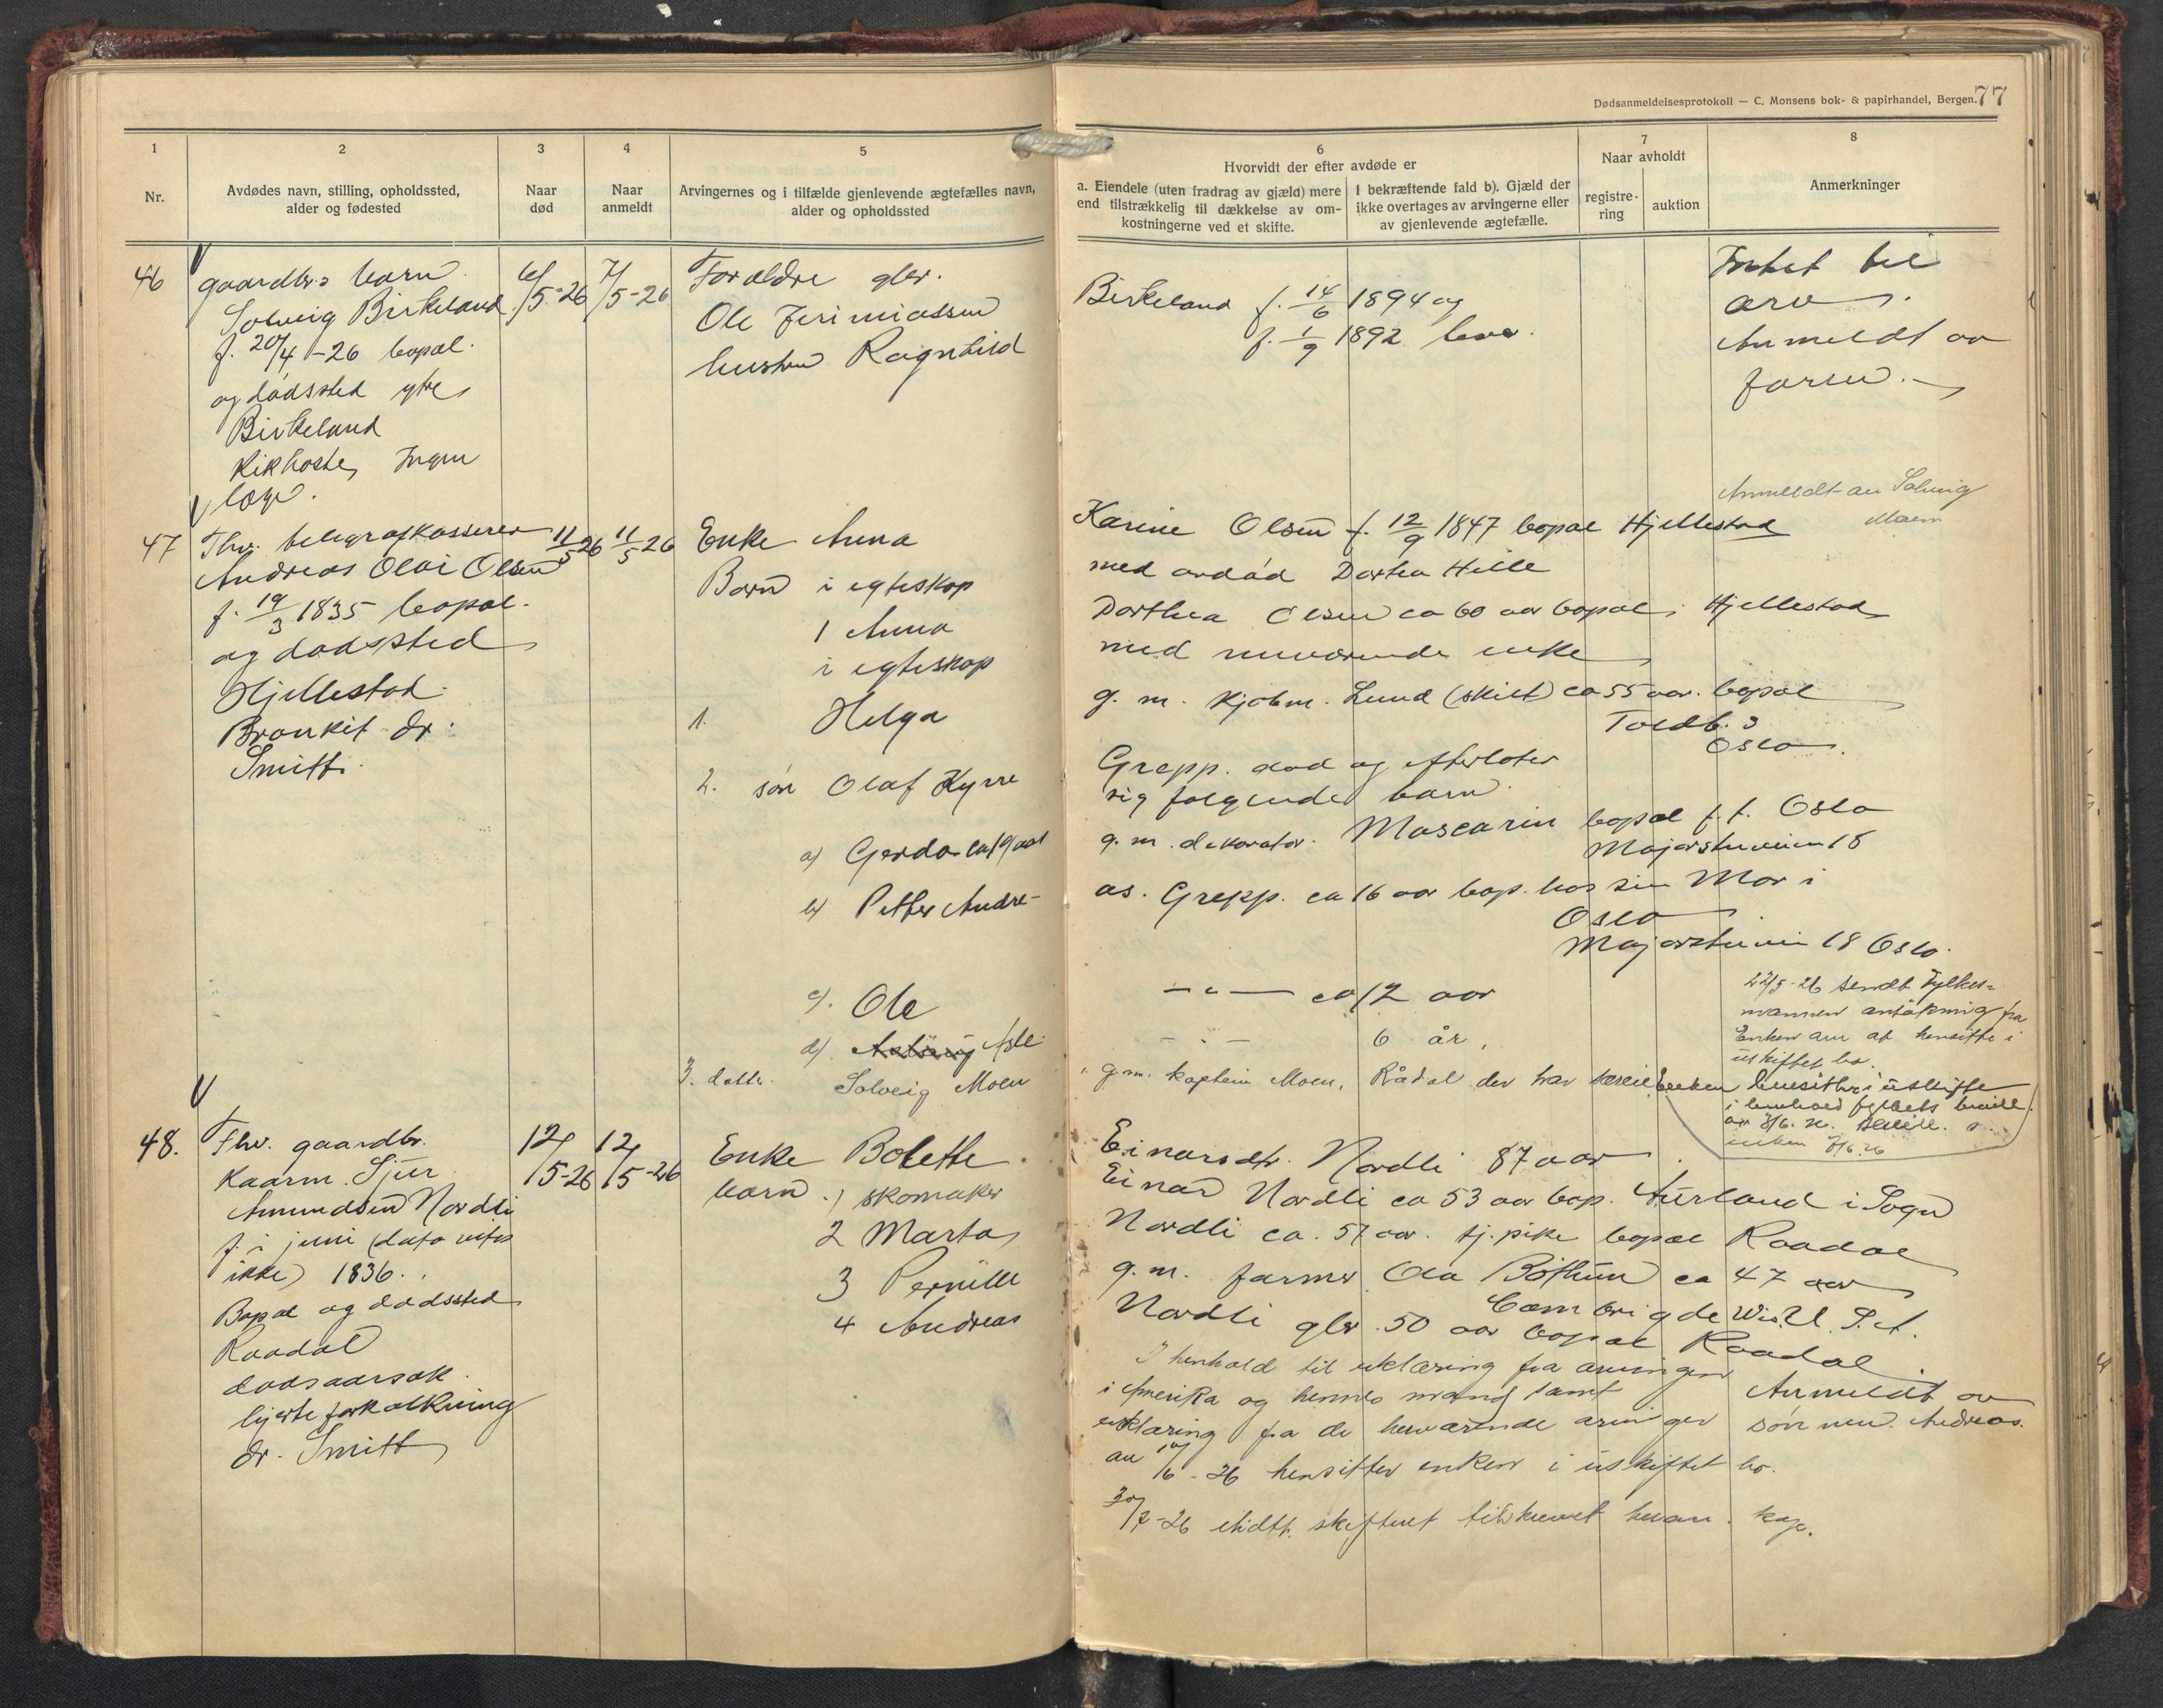 Dødsanmeldelsesprotokoll — C. Monsens bok- & papirhandel, Bergen. 77
1
Nr.
2
Avdødes navn, stilling, opholdssted,
alder og fødested
3
Naar
død
4
Naar
anmeldt
5
Arvingernes og i tilfælde gjenlevende ægtefælles navn,
alder og opholdssted
6
Hvorvidt der efter avdøde er
a. Eiendele (uten fradrag av gjæld) mere
end tilstrækkelig til dækkelse av om-
kostningerne ved et skifte.
I bekræftende fald b). Gjæld der
ikke overtages av arvingerne eller
av gjenlevende ægtefælle.
7
Naar avholdt
registre-
ring
auktion
8
Anmerkninger
46
gaardbr.s barn
Solveig Birkeland
f. 20/4 -26 bopæl
og dødssted ytre
Birkeland
Kikhoste, Ingen
læge.
6/5-26
7/5-26
Forældre gbr.
Ole Jerimiassen
hustru Ragnhild
Birkeland f. 14/6 1894 og
f. 1/9 1892 lever.
Intet til
arv.
Anmeldt av
faren.
47
Fhv. telegrafkasserer
Andreas Olai Olsen
f. 19/3 1835 bopæl
og dødssted
Hjellestad
Bronkit dr.
Smitt.
11/5 26
11/5 26
Enke Anna
Barn i egteskap
1 Anna
i egteskap
1. Helga
2. søn Olaf Kyrre
a) Gerda ca 19 aar
b) Petter Andre-
c). Ole
d). Asle
3. datter. Solveig Moen
Karine Olsen f. 12/9 1847 bopæl Hjellestad
med avdød Dortea Hille
Dorthea Olsen ca 60 aar bopæl Hjellestad
med nuværende enke
g. m. kjøbm. Lund (skilt) ca 55 aar. bopæl
Toldb. 3
Oslo.
Grepp. død og efterlater
sig følgende barn.
g. m. dekoratør. Mascarin bopæl f. t. Oslo
Majorstuveien 18
as. Grepp. ca 16 aar bop. hos sin Mor i
Oslo
Majorstuveien 18 Oslo.
— " — ca 12 aar
- " - 6 år.
g. m. kaptein Moen, Rådal der har særeie
Anmeldt av Solveig
Moen
22/5-26 sendt Fylkes-
mannen ansökning fra
Enken om at hensitte i
uskiftet bo.
Enken hensitter i uskifte
i henhold fylkets bevill.
av 3/6. 26.
48.
Fhv. gaardbr.
Kaarm. Sjur
Amundsen Nordli
f. i juni (dato vites
ikke) 1836.
Bopæl og dødssted
Raadal
dødsaarsak
hjerteforkalkning
dr. Smitt
12/5-26
12/5-26
Enke Bolette
barn 1) skomaker
2 Marta
3 Pernille
4 Andreas
Einarsdtr. Nordli 87 aar
Einar Nordli ca 53 aar bop. Aurland i Sogn
Nordli ca. 57 aar. tj. pike bopæl Raadal
g. m. farmer Ola Bøthun ca 47 aar
Cambrigde Wis. U. S. A.
Nordli gbr. 50 aar bopæl Raadal.
I henhold til erklæring fra arvingen
i Amerika og hennes mand samt
erklæring fra de herværende arvinger
av 10/6-26 hensitter enken i uskiftet bo.
30/7-26 skifteret
Anmeldt av
sønnen Andreas.